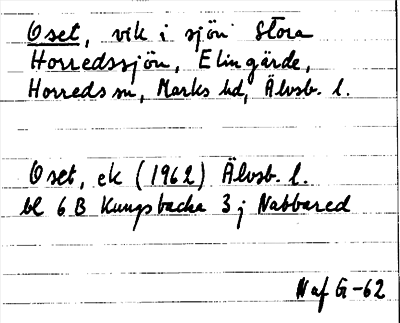 Oset, vik i sjön Stora
Horredssjön, Elingärde,
Horreds sn, Marks hd, Älvsb. l.
Oset, ek (1962) Älvsb. l.
bl 6 B Kungsbacka 3 j Nabbared
Naf G-62